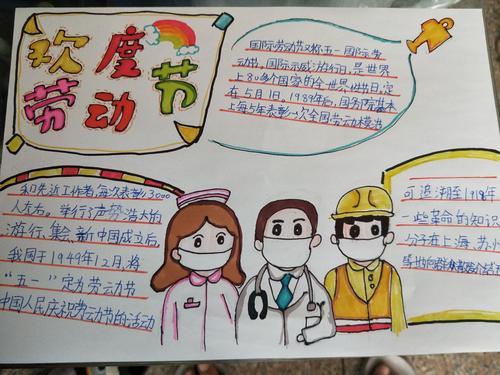 欢度
劳动节
国际劳动节又称五一国际劳
动节、国际示威游行日，是世界
上80多个国家的全世界性节日，定
在5月1日。1989年后，国务院基本
上每5年表彰一次全国劳动模范
和先近工作者，每次表彰3000
人左右。举行了声势浩大的
游行、集会，新中国成立后，
我国于1949年12月，将
“五一”定为劳动节
中国人民庆祝劳动节的活动
可追溯至1918年
一些革命的知识
分子在上海、苏州
等地向群众